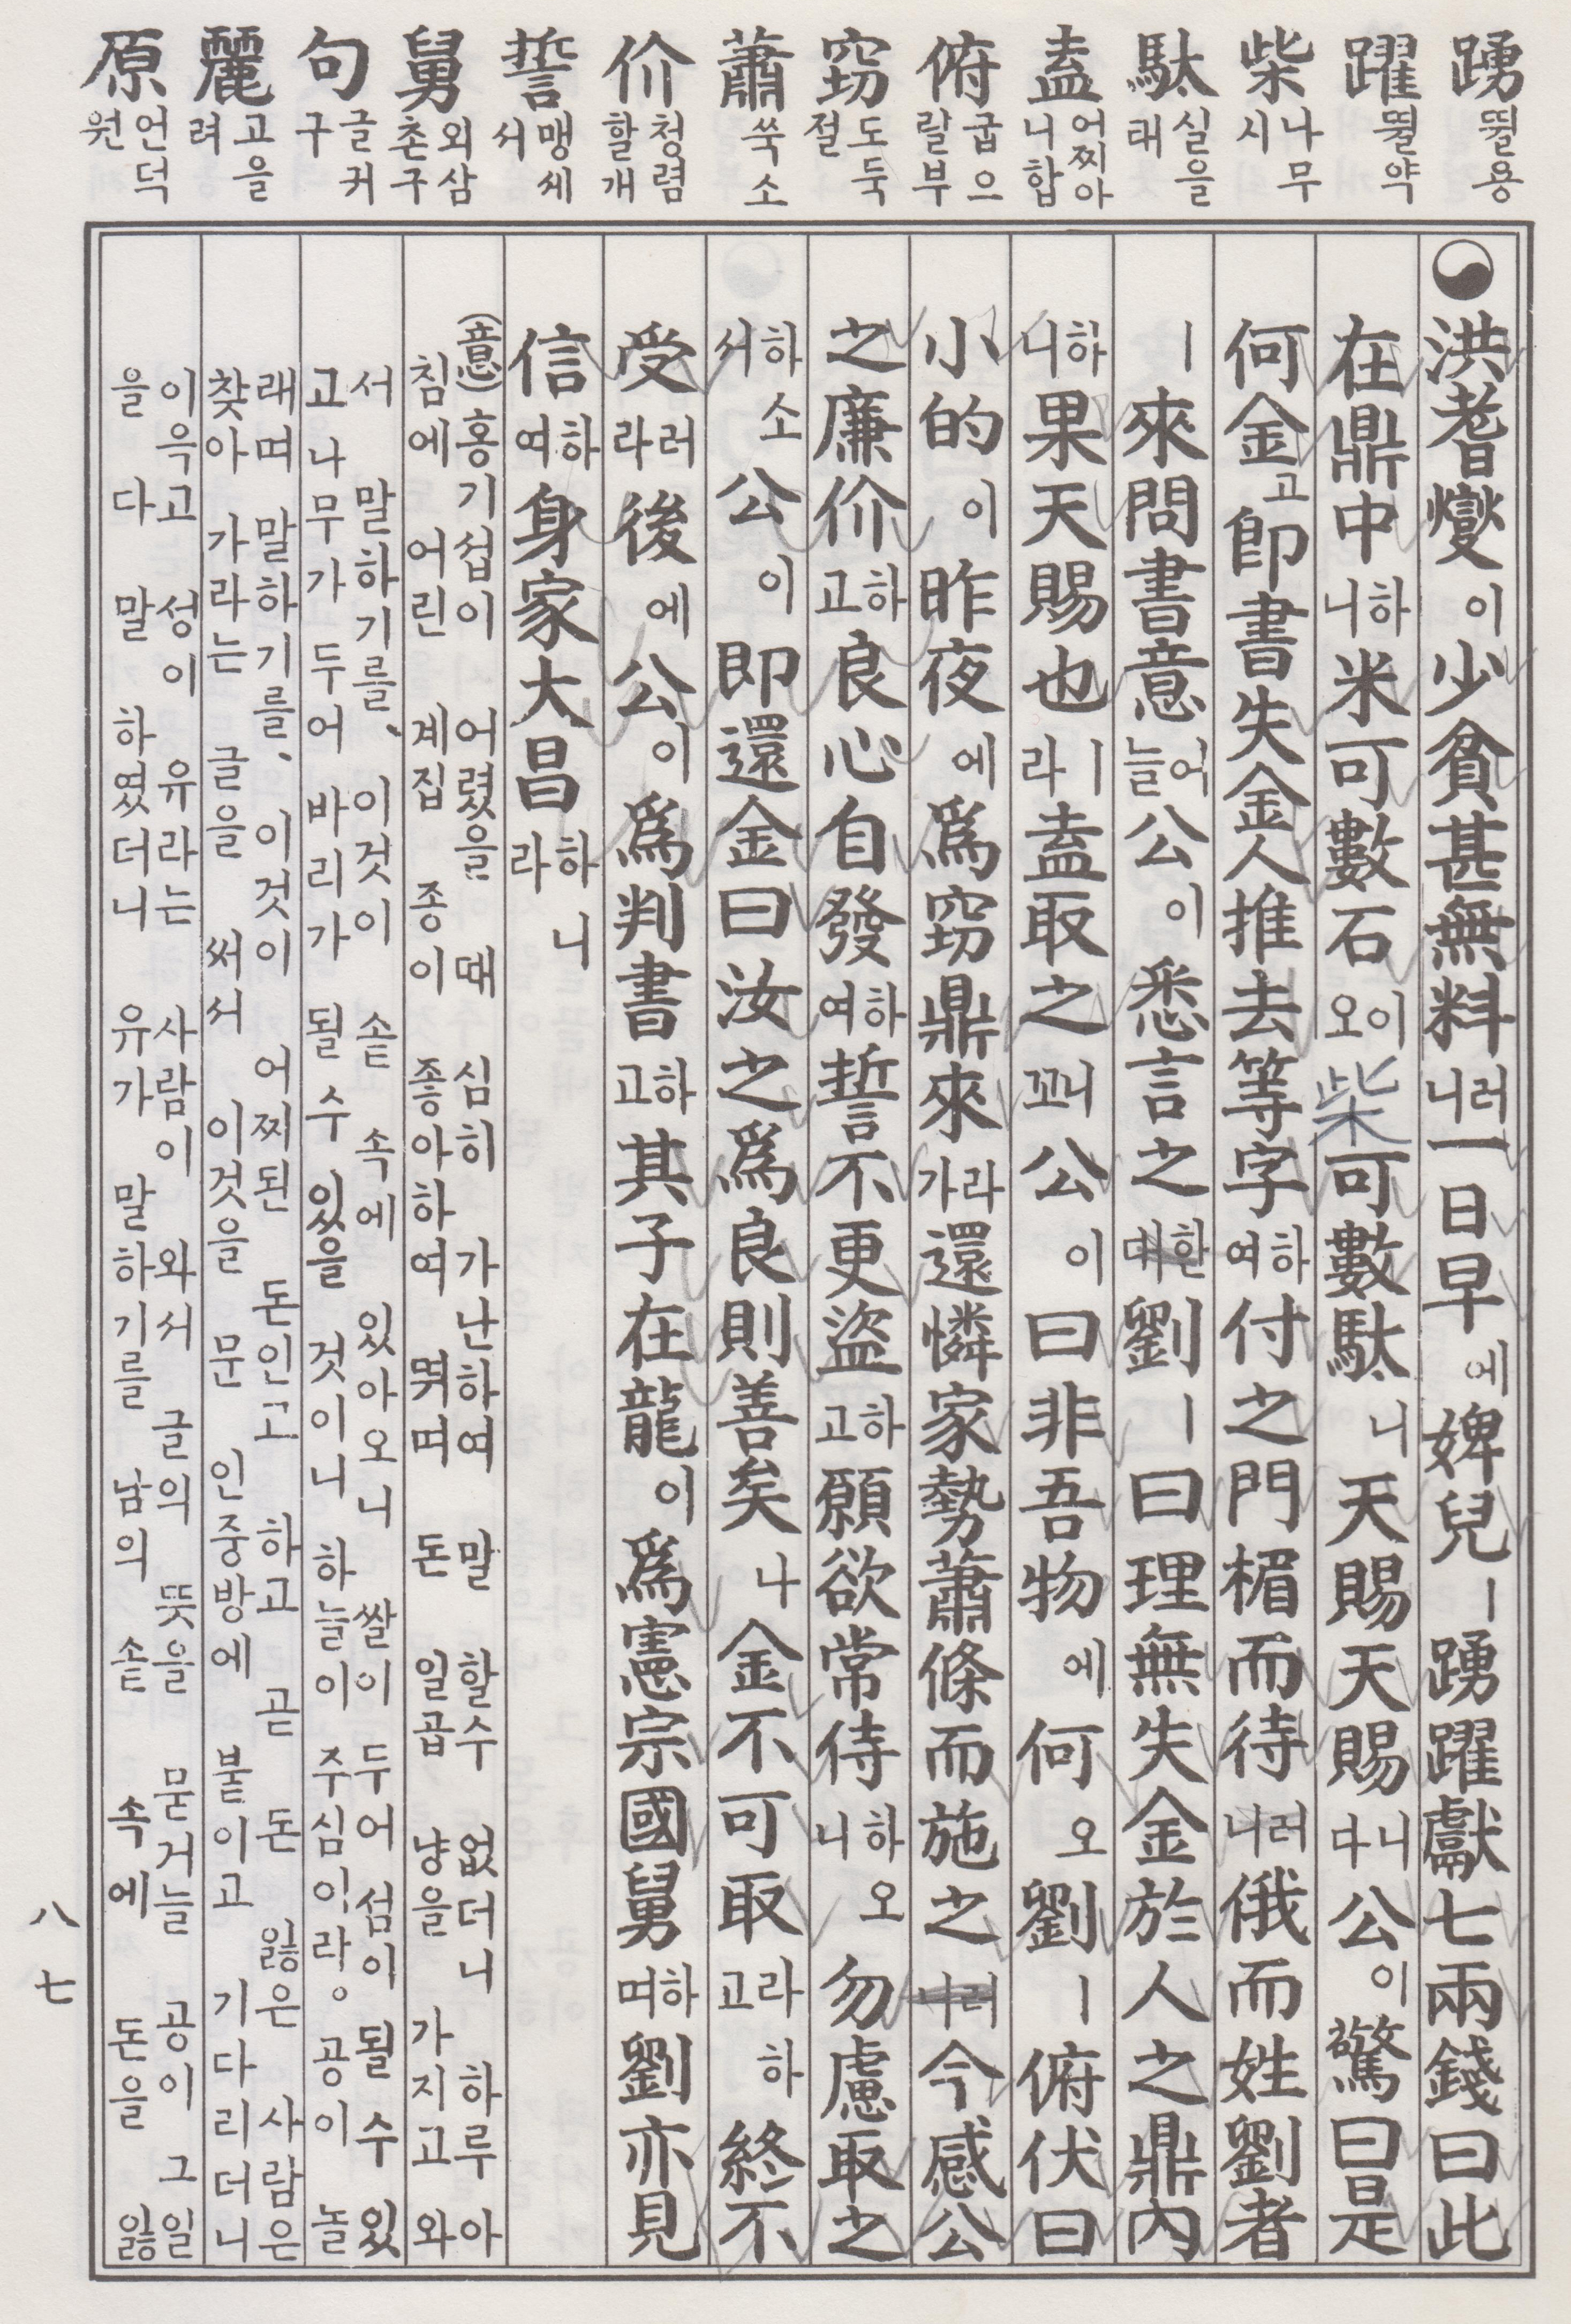 踴 뛸용
躍 뛸약
柴 나무시
駄 실을태
盍 어찌아니합
俯 굽으릴부
窃 도둑절
蕭 쑥소
价 청렴할개
誓 맹세서
舅 외삼촌구
句 글커구
麗 고을려
原 언덕원
洪耆燮이 少貧甚無料러니 一日早에 婢兒ㅣ 踴躍獻七兩錢曰此
在鼎中하니 米可數石이오 柴可數駄니 天賜天賜니다 公이 驚曰是
何金고 卽書失金人推去等字하여 付之門楣而待러니 俄而姓劉者
ㅣ 來問書意어늘 公이 悉言之한대 劉ㅣ 曰理無失金於人之鼎內
하니 果天賜也ㅣ라 盍取之니꼬 公이 曰非吾物에 何오 劉ㅣ 俯伏曰
小的이 昨夜에 爲窃鼎來라가 還憐家勢蕭條而施之러니 今感公
之廉价하고 良心自發하여 誓不更盜하고 願欲常侍하오니 勿慮取之
하소서 公이 卽還金曰汝之爲良則善矣나 金不可取라하고 終不
受러라 後에 公이 爲判書하고 其子在龍이 爲憲宗國舅하며 劉亦見
信하여 身家大昌하니라
(意)홍기섭이 어렸을 때 심히 가난하여 말할수 없더니 하루 아
침에 어린 계집 종이 좋아하여 뛰며 돈 일곱 냥을 가지고 와
서 말하기를、 이것이 솥 속에 있아오니 쌀이 두어 섬이 될 수 있
고 나무가 두어 바리가 될 수 있을 것이니 하늘이 주심이라。 공이 놀
래며 말하기를、 이것이 어찌된 돈인고 하고 곧 돈 잃은 사람은
찾아 가라는 글을 써서 이것을 문 인중방에 붙이고 기다리더니
이윽고 성이 유라는 사람이 와서 글의 뜻을 묻거늘 공이 그 일
을 다 말하였더니 유가 말하기를 남의 솥 속에 돈을 잃
八七